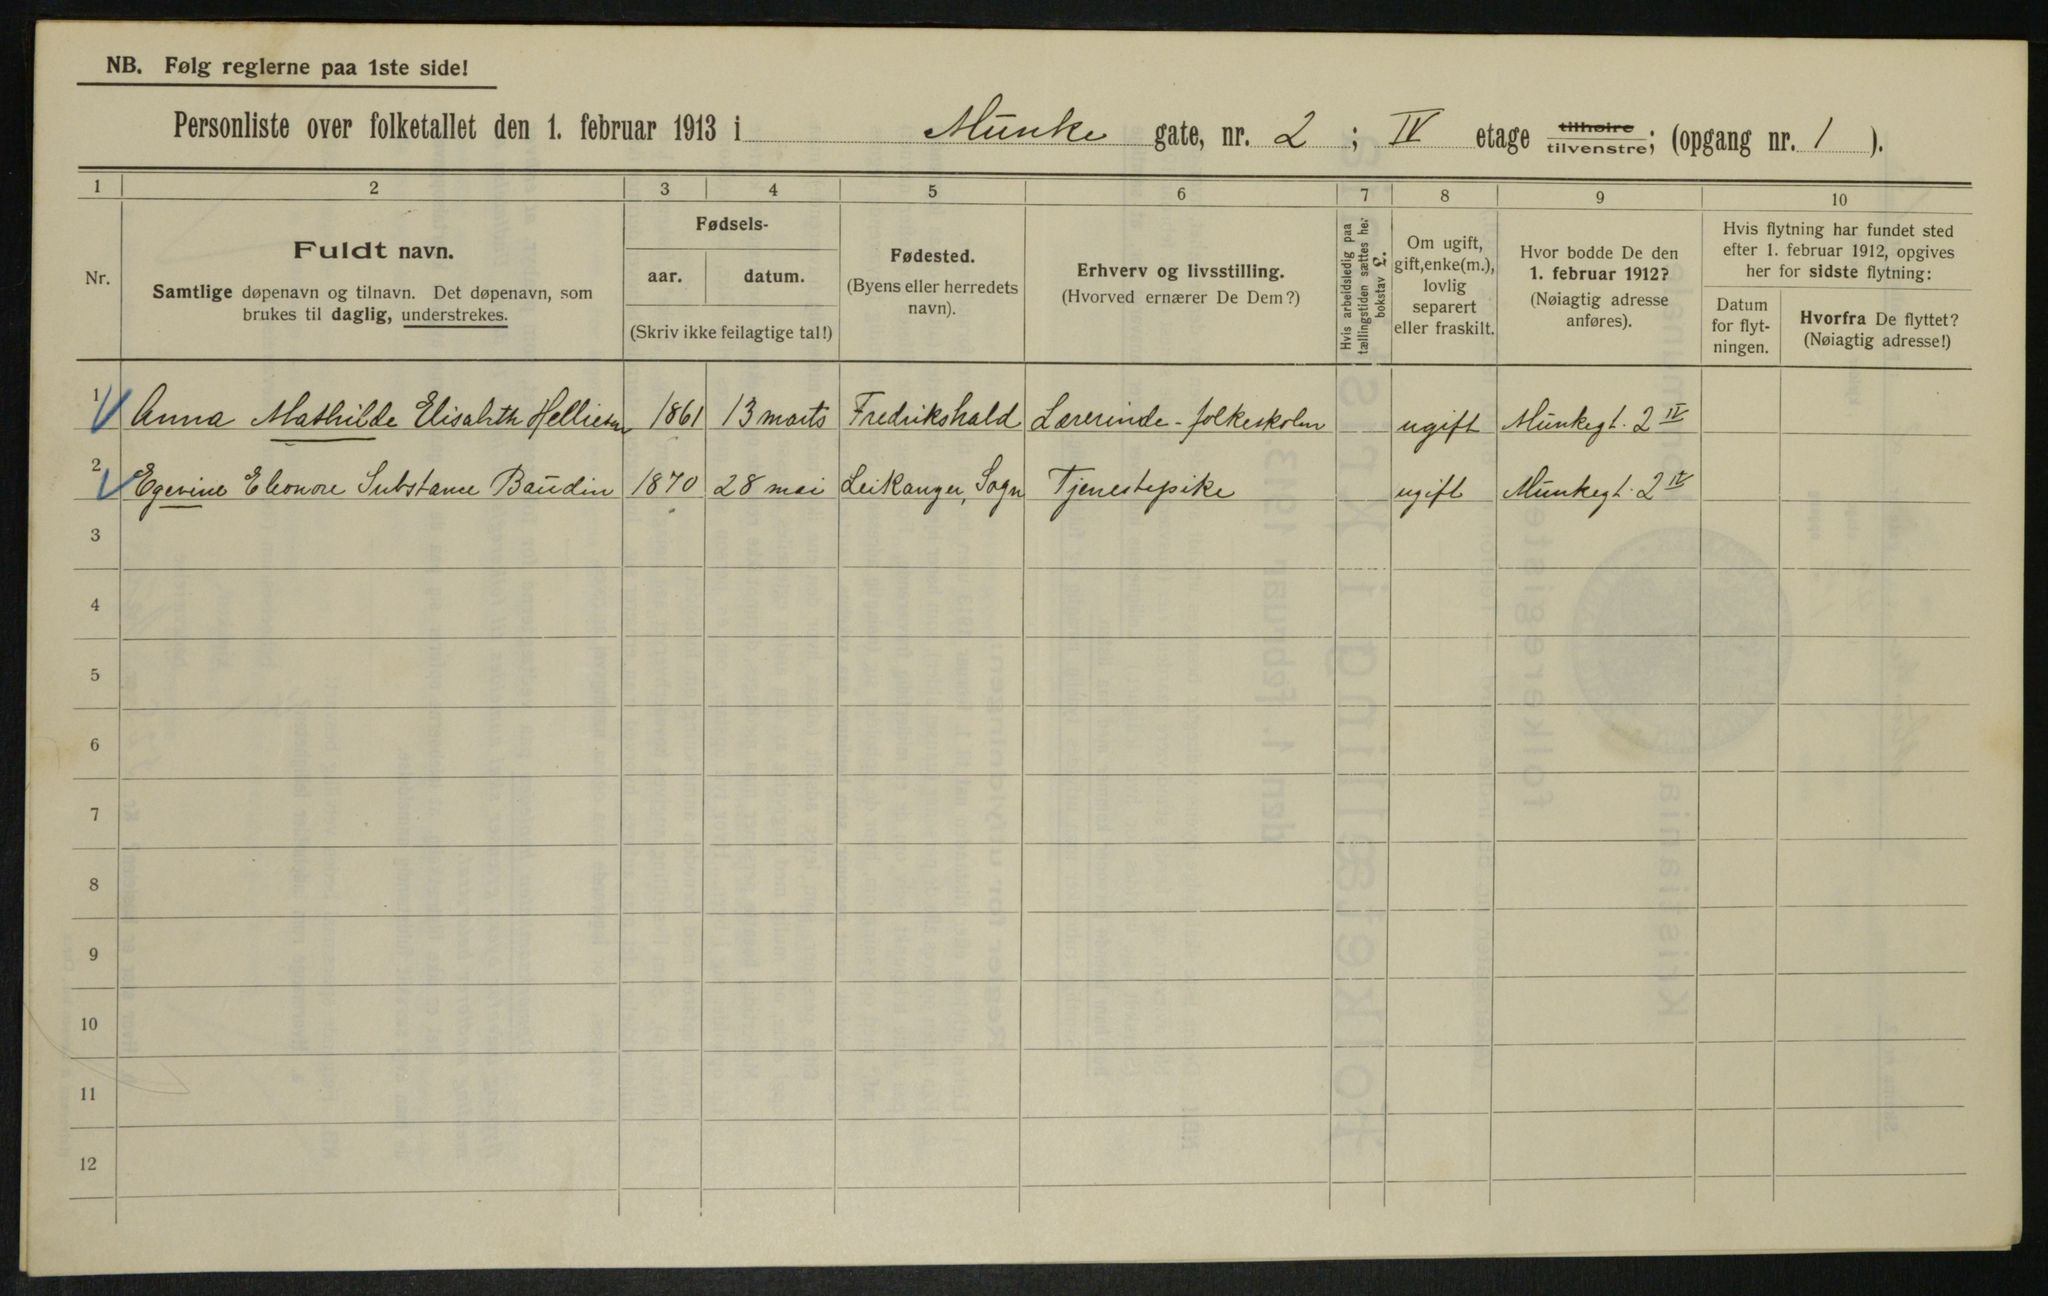 NB. Følg reglerne paa 1ste side!
Personliste over folketallet den 1. februar 1913 i Munke gate, nr. 2 ; IV etage tilhøire tilvenstre; (opgang nr. 1 ).
1 2 3 4 5 6 7 8 9 10
Nr.
Fuldt navn.
Samtlige døpenavn og tilnavn. Det døpenavn, som
brukes til daglig, understrekes.
Fødsels-
aar. datum.
(Skriv ikke feilagtige tal!)
Fødested.
(Byens eller herredets
navn).
Erhverv og livsstilling.
(Hvorved ernærer De Dem?)
Hvis arbeidsledig paa
tællingstiden sættes her
bokstav L.
Om ugift,
gift, enke(m.),
lovlig
separert
eller fraskilt.
Hvor bodde De den
1. februar 1912?
(Nøiagtig adresse
anføres).
Hvis flytning har fundet sted
efter 1. februar 1912, opgives
her for sidste flytning:
Datum
for flyt-
ningen.
Hvorfra De flyttet?
(Nøiagtig adresse!)
1 Anna Mathilde Elisabeth Helliesen 1861 13 marts Fredrikshald Lærerinde - folkeskolen ugift Munkegt. 2 IV
2 Egevine Eleonore Substance Baudin 1870 28 mai Leikanger, Sogn Tjenestepike ugift Munkegt. 2 IV
3
4
5
6
7
8
9
10
11
12